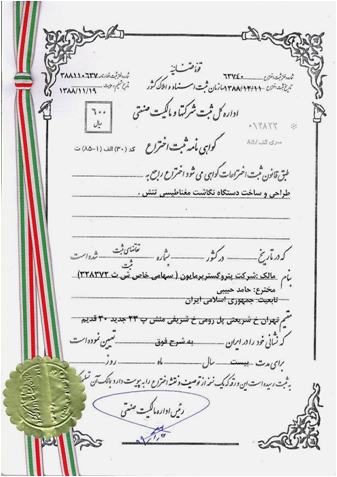 قوه قضائیه
شماره ثبت اختراع ۶۳۷۴۰
تاریخ ثبت اختراع ۱۳۸۸/۱۲/۱۱
سازمان ثبت اسناد و املاک کشور
۳۸۸۱۱۰۶۳۷
۱۳۸۸/۱۱/۱۹
اداره کل ثبت شرکتها و مالکیت صنعتی
۶۰۰
ریال
سری الف/۸۵
گواهی نامه ثبت اختراع
کد (۳۰) الف (۱-۸۵) ت
طبق قانون ثبت اختراعات گواهی می شود اختراع راجع به
طراحی و ساخت دستگاه نگاشت مغناطیسی تنش .
که در تاریخ در کشور بشماره تقاضای ثبت شده است
ثبت
بنام مالک :شرکت پتروگسترپرمایون ( سهامی خاص ش ث ۳۲۸۳۷۲)
مخترع: حامد حبیبی
تابعیت: جمهوری اسلامی ایران
مقیم تهران خ شریعتی پل رومی خ شریفی منش پ ۲۳ جدید ۳۰ قدیم
که نشانی خود را در ایران به شرح فوق تعیین نموده است
برای مدت بیست سال ماه روز
به ثبت رسیده است این ورقه که یک نسخه از توصیف و نقشه اختراع را به پیوست دارد
رئیس اداره مالکیت صنعتی